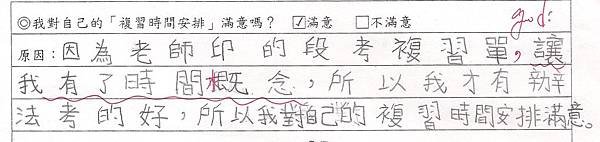 ◎我對自己的「複習時間安排」滿意嗎？ ☑滿意 □不滿意 god!
原因：因為老師印的段考複習單，讓
我有了時間概念，所以我才有辦
法考的好，所以我對自己的複習時間安排滿意。